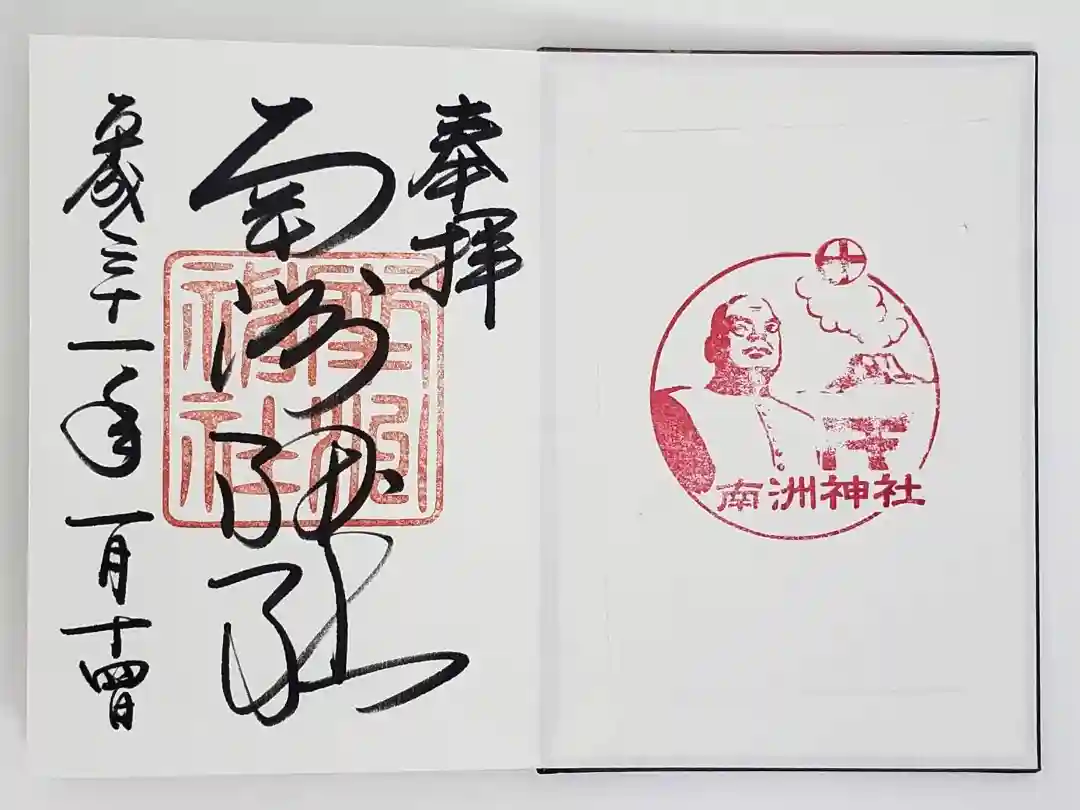 奉拝
南洲神社
平成三十一年一月十四日
南洲神社